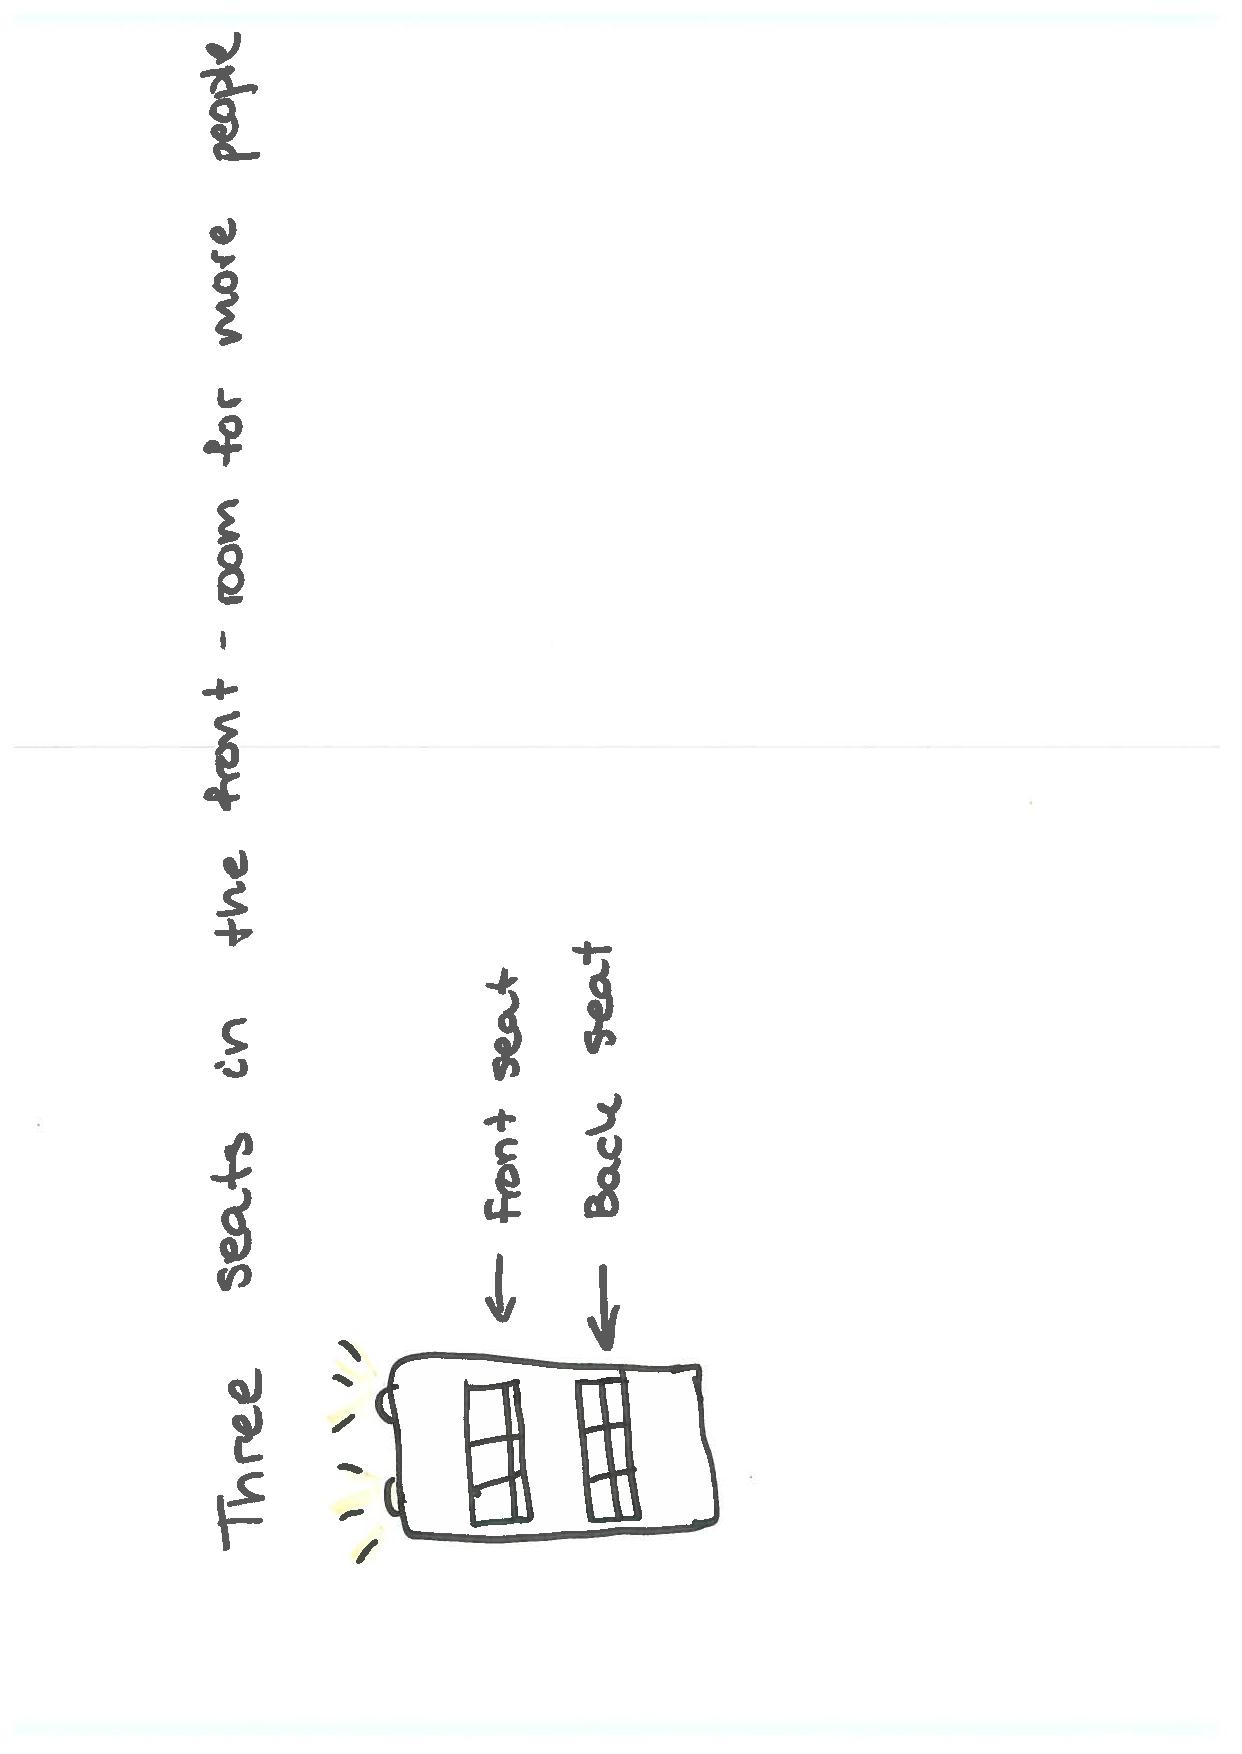 Three seats in the front - room for more people
← front seat
← Back seat